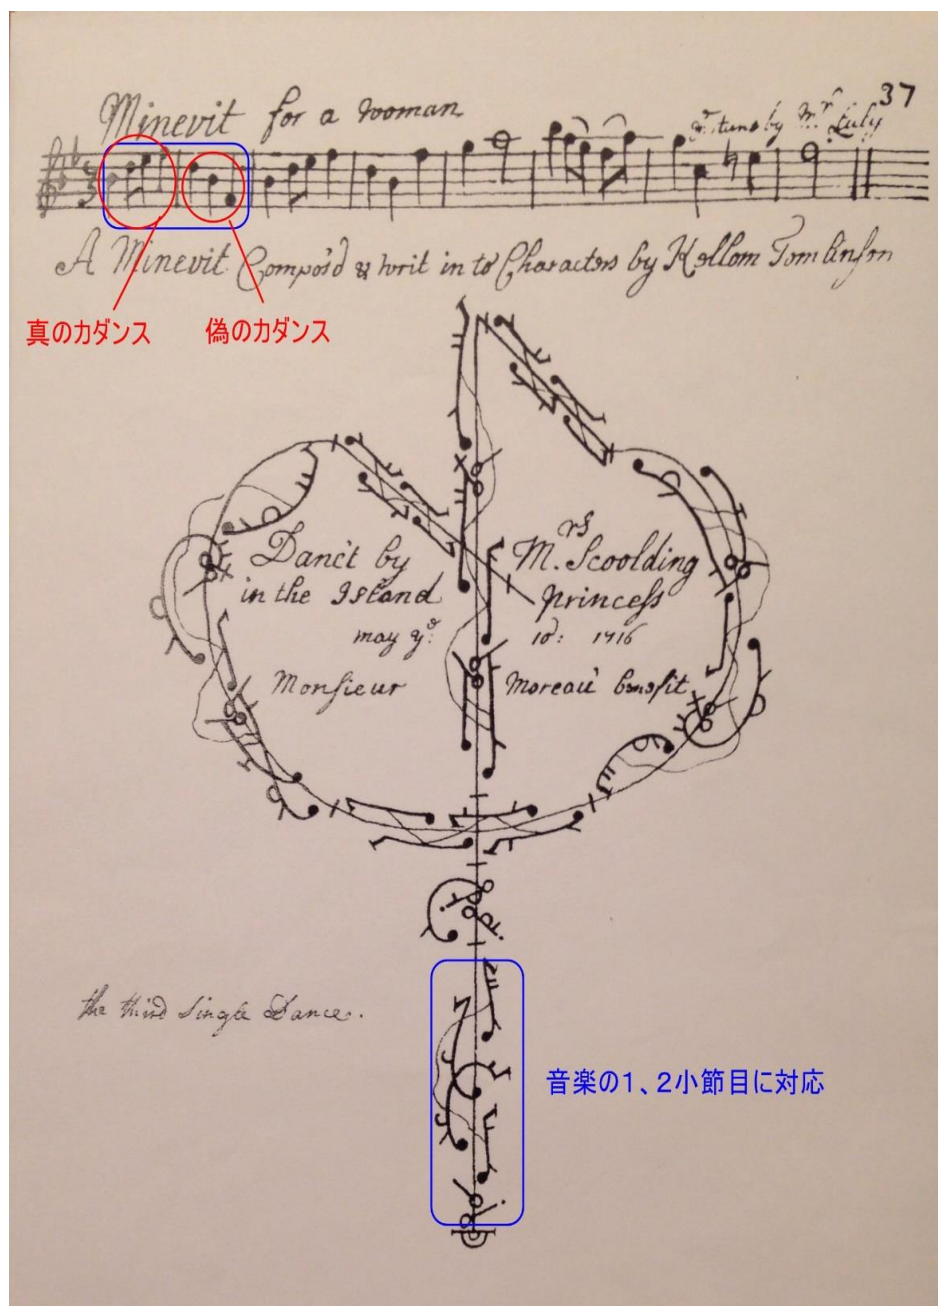 37
Minevit for a woman
tune by Mr. Luly
A Minevit Compos'd & writ in to Characters by Kellom Tomlinson
真のカダンス
偽のカダンス
Danc't by Mrs. Scoolding
in the Island princess
may ye. 10: 1716
Monsieur Moreau benefit
the third Single Dance.
音楽の1、2小節目に対応